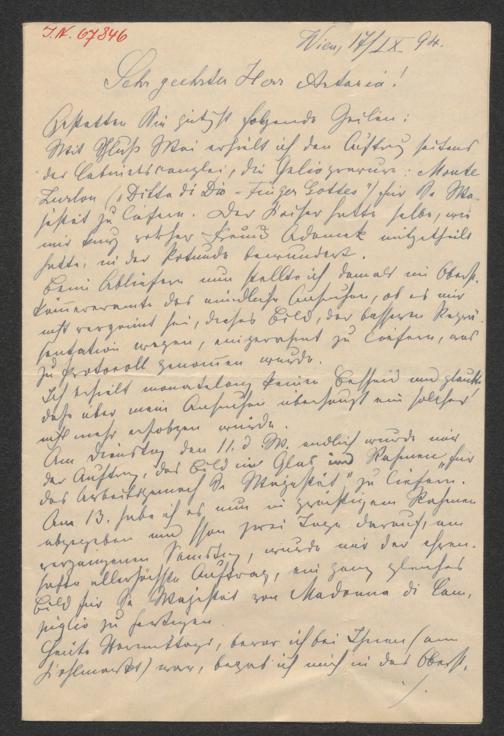 I.N. 67846
Wien, 17/IX. 94.
Sehr geehrter Herr Artaria!
Gestatten Sie gütigst folgende Zeilen:
Mit Schluß Mai erhielt ich den Auftrag seitens
der Cabinetskanzlei, die Heliogravure: Monte
Zurlon („Ditta di Dio - Finger Gottes") für Se Ma-
jestät zu liefern. Der Kaiser hatte selbe, wie
mir kurz vorher Freund Adamek mitgetheilt
hatte, in der Rotunde bewundert.
Beim Abliefern nun stellte ich damals im Oberst-
kämmereramte das mündliche Ansuchen, ob es mir
nicht vergönnt sei, dieses Bild, der besseren Reprä-
sentation wegen, eingerahmt zu liefern, was
zu Protocoll genommen wurde.
Ich erhielt monatelang keinen Bescheid und glaubte
daß über mein Ansuchen überhaupt ein solcher
nicht mehr erfolgen würde.
Am Dienstag den 11. d M. endlich wurde mir
der Auftrag, das Bild in Glas und Rahmen „für
das Arbeitsgemach Sr Majestät" zu liefern.
Am 13. habe ich es nun in prächtigem Rahmen
abgegeben und schon zwei Tage darauf, am
vergangenen Samstag, wurde mir der ehren-
hafte allerhöchste Auftrag, ein ganz gleiches
Bild für Se Majestät von Madonna di Cam-
piglio zu fertigen.
Heute Vormittags, bevor ich bei Ihnen (am
Kohlmarkt) war, begab ich mich in das Oberst-
./.